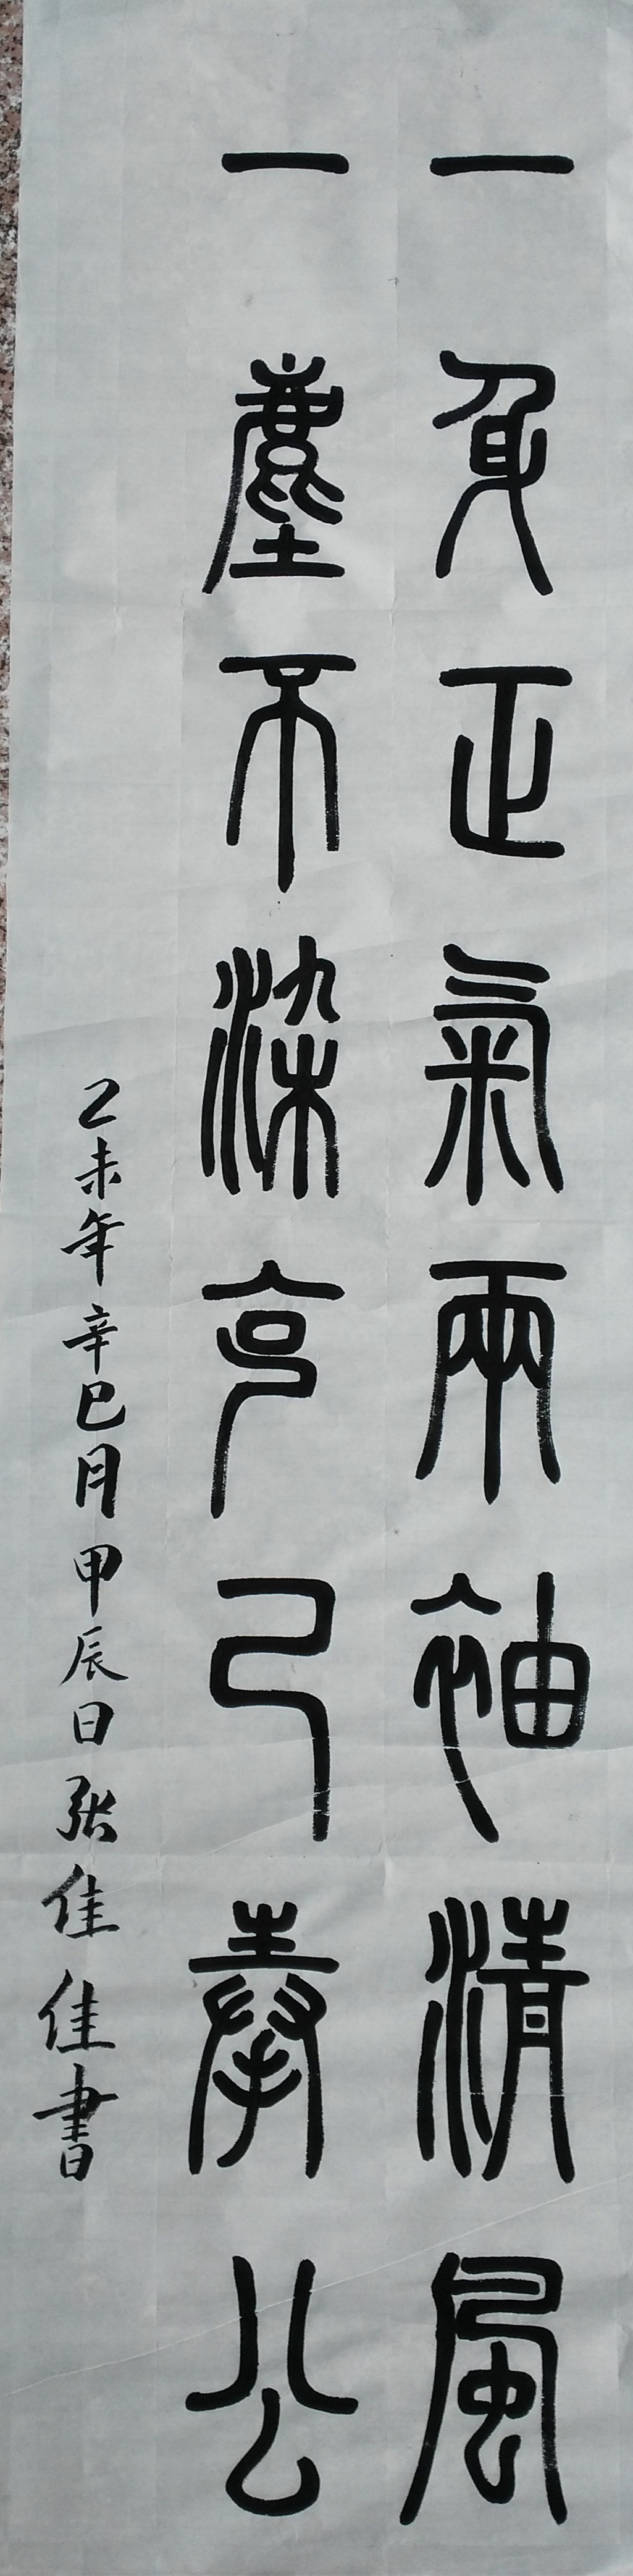 一身正氣兩袖清風
一塵不染克己奉公
乙未年辛巳月甲辰日張佳佳書